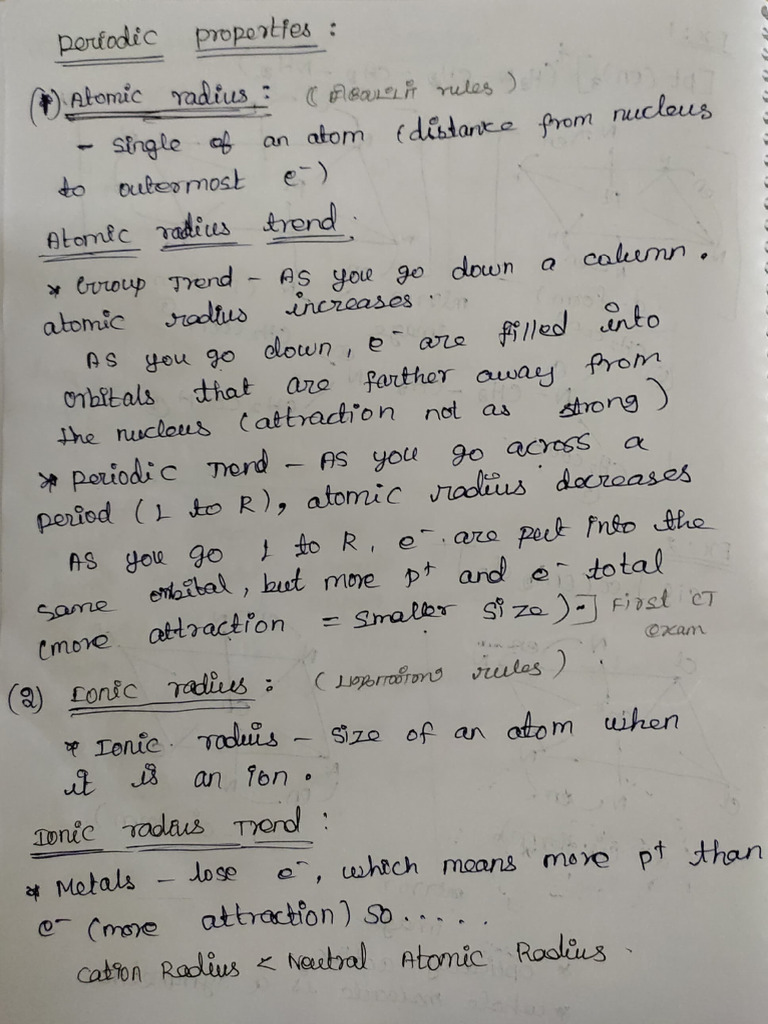 Periodic properties :
(1) Atomic radius : ( rules )
- single of an atom (distance from nucleus
to outermost e⁻)
Atomic radius trend :
* Group Trend - As you go down a column .
atomic radius increases .
As you go down, e⁻ are filled into
orbitals that are farther away from
the nucleus (attraction not as strong)
* Periodic Trend - As you go across a
period (L to R), atomic radius decreases
As you go L to R, e⁻ are put into the
same orbital, but more p⁺ and e⁻ total
(more attraction = smaller size) -] First CT
exam
(2) Ionic radius : ( rules ) .
* Ionic radius - size of an atom when
it is an ion .
Ionic radius Trend :
* Metals - lose e⁻, which means more p⁺ than
e⁻ (more attraction) so .....
Cation Radius < Neutral Atomic Radius .